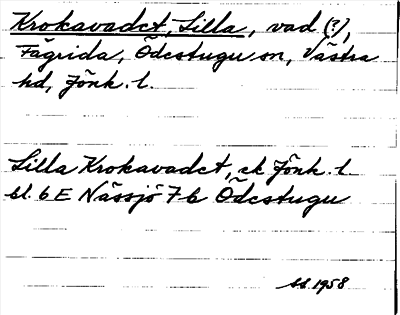 Krokavadet, Lilla, vad (?),
Fagrida, Ödestugu sn, Västra
hd, Jönk. l.
Lilla Krokavadet, ek Jönk. l
bl. 6 E Nässjö 7 b Ödestugu
1958